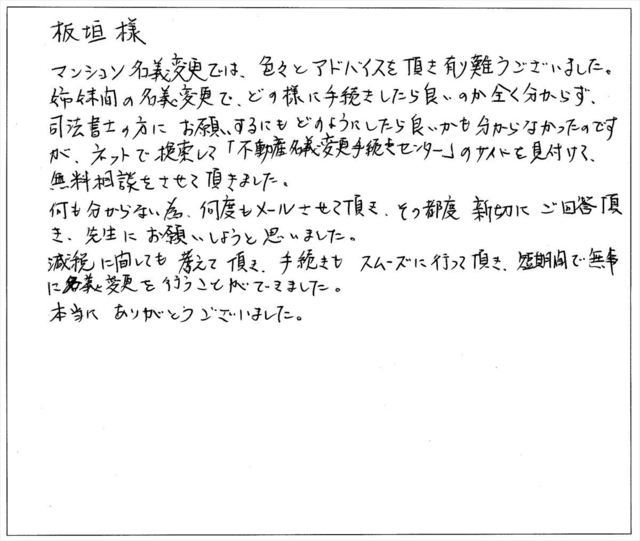 板垣 様
マンション名義変更では、色々とアドバイスを頂き有り難うございました。
姉妹間の名義変更で、どの様に手続きしたら良いのか全く分からず、
司法書士の方に お願いするにもどのようにしたら良いかも分からなかったのです
が、ネットで検索して「不動産名義変更手続きセンター」のサイトを見付けて、
無料相談をさせて頂きました。
何も分からない為、何度もメールさせて頂き、その都度 親切に ご回答頂
き、先生に お願いしようと思いました。
減税に関しても 考えて頂き、手続きも スムーズに行って頂き、短期間で無事
に名義変更を行うことができました。
本当に ありがとうございました。